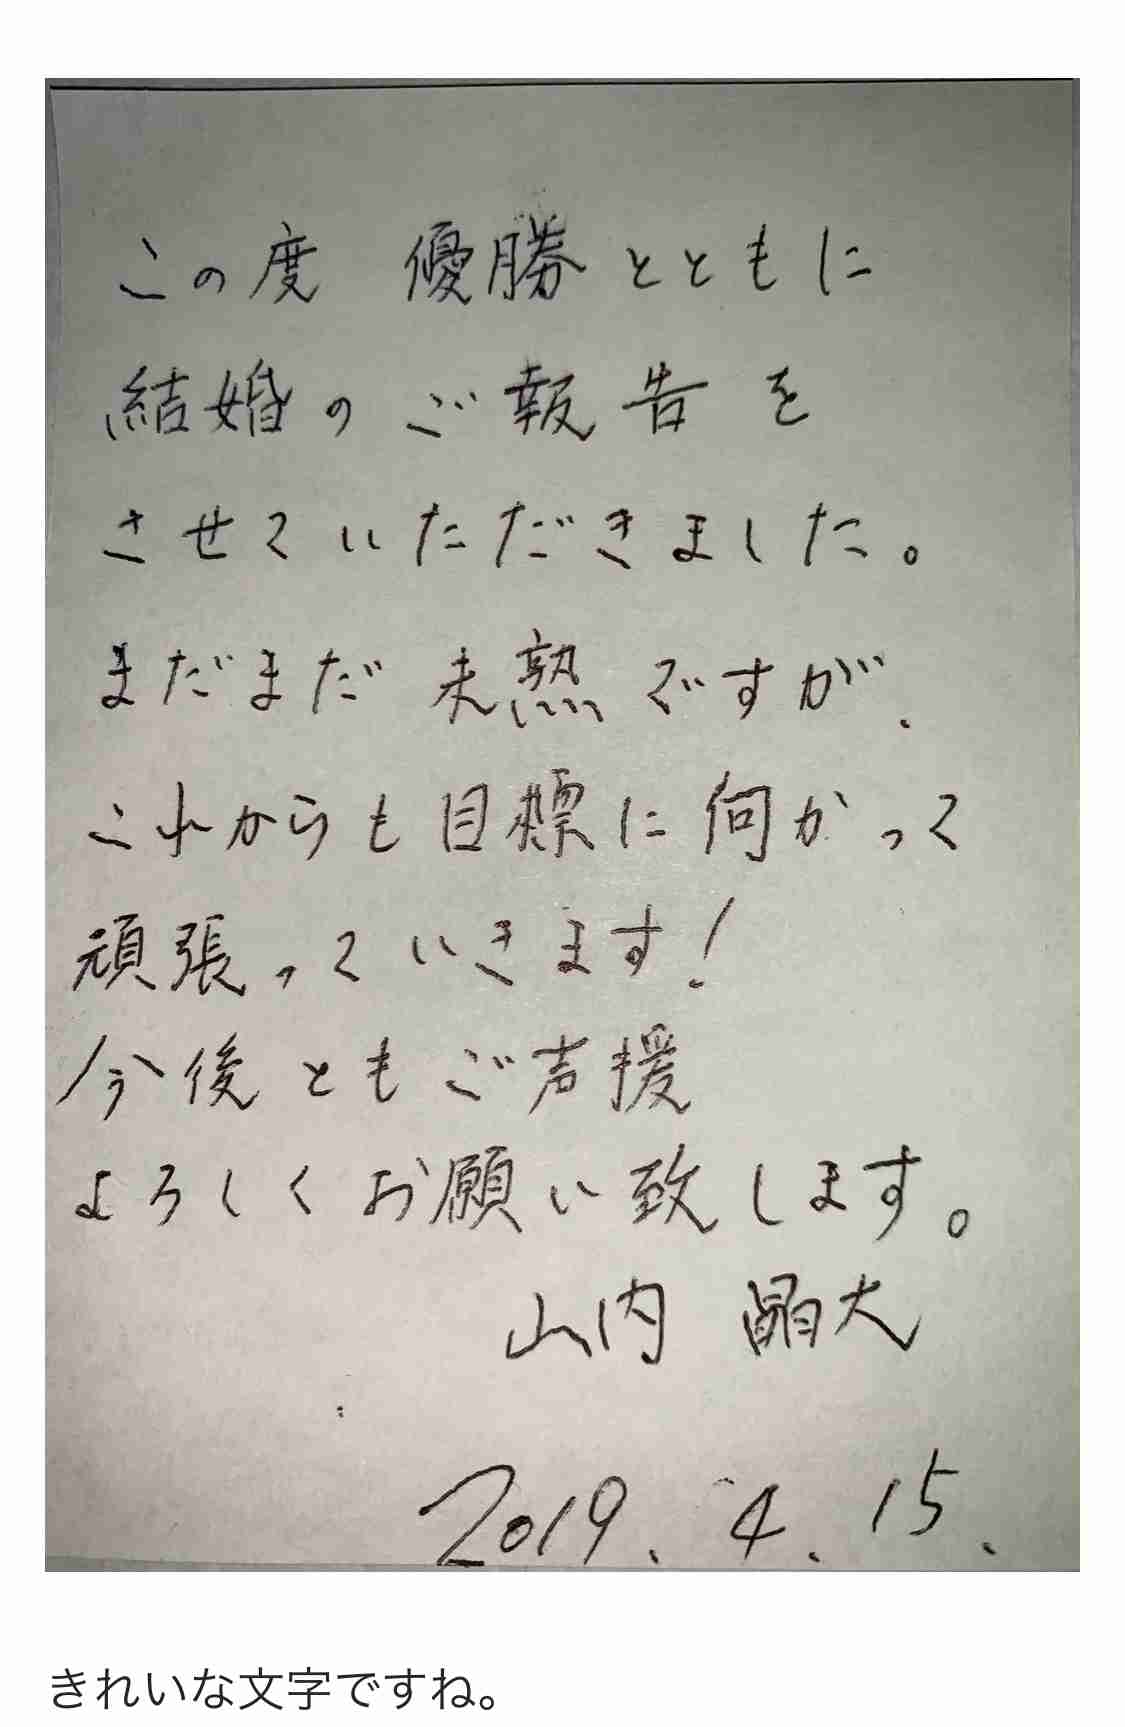 この度 優勝とともに
結婚のご報告を
させていただきました。
まだまだ未熟ですが、
これからも目標に向かって
頑張っていきます！
今後ともご声援
よろしくお願い致します。
山内 晶大
2019.4.15.
きれいな文字ですね。